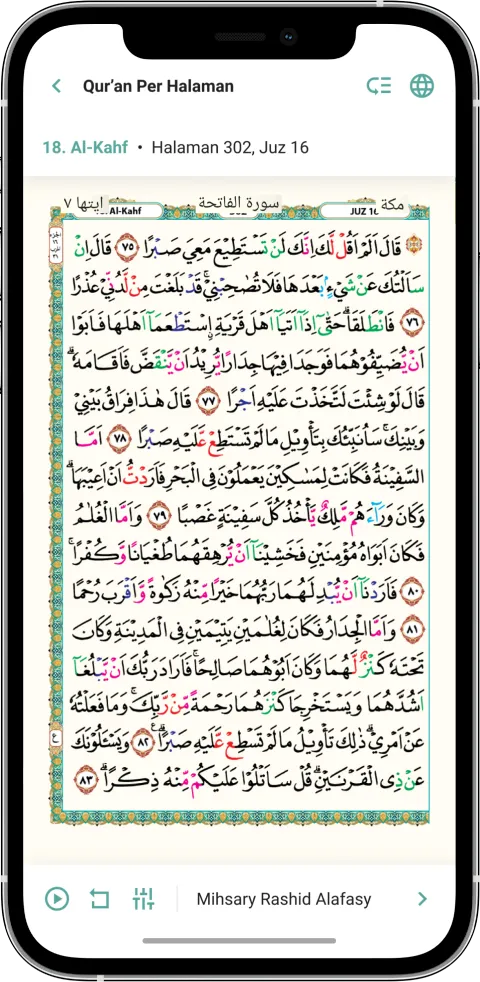 Qur’an Per Halaman
18. Al-Kahf • Halaman 302, Juz 16
مكة سورة الفاتحة ايتها ٧
Al-Kahf JUZ 16
قَالَ اَلَمْ اَقُلْ لَّكَ اِنَّكَ لَنْ تَسْتَطِيْعَ مَعِيَ صَبْرًا ٧٥ قَالَ اِنْ
سَاَلْتُكَ عَنْ شَيْءٍۢ بَعْدَهَا فَلَا تُصٰحِبْنِيْۚ قَدْ بَلَغْتَ مِنْ لَّدُنِّيْ عُذْرًا
٧٦ فَانْطَلَقَاۗ حَتّٰىٓ اِذَآ اَتَيَآ اَهْلَ قَرْيَةِ ِۨاسْتَطْعَمَآ اَهْلَهَا فَاَبَوْا
اَنْ يُّضَيِّفُوْهُمَا فَوَجَدَا فِيْهَا جِدَارًا يُّرِيْدُ اَنْ يَّنْقَضَّ فَاَقَامَهٗ ۗ
قَالَ لَوْ شِئْتَ لَتَّخَذْتَ عَلَيْهِ اَجْرًا ٧٧ قَالَ هٰذَا فِرَاقُ بَيْنِيْ
وَبَيْنِكَۚ سَاُنَبِّئُكَ بِتَأْوِيْلِ مَا لَمْ تَسْتَطِعْ عَّلَيْهِ صَبْرًا ٧٨ اَمَّا
السَّفِيْنَةُ فَكَانَتْ لِمَسٰكِيْنَ يَعْمَلُوْنَ فِى الْبَحْرِ فَاَرَدْتُّ اَنْ اَعِيْبَهَاۗ
وَكَانَ وَرَاۤءَهُمْ مَّلِكٌ يَّأْخُذُ كُلَّ سَفِيْنَةٍ غَصْبًا ٧٩ وَاَمَّا الْغُلٰمُ
فَكَانَ اَبَوَاهُ مُؤْمِنَيْنِ فَخَشِيْنَآ اَنْ يُّرْهِقَهُمَا طُغْيَانًا وَّكُفْرًا ۚ
٨٠ فَاَرَدْنَآ اَنْ يُّبْدِلَهُمَا رَبُّهُمَا خَيْرًا مِّنْهُ زَكٰوةً وَّاَقْرَبَ رُحْمًا
٨١ وَاَمَّا الْجِدَارُ فَكَانَ لِغُلٰمَيْنِ يَتِيْمَيْنِ فِى الْمَدِيْنَةِ وَكَانَ
تَحْتَهٗ كَنْزٌ لَّهُمَا وَكَانَ اَبُوْهُمَا صَالِحًاۚ فَاَرَادَ رَبُّكَ اَنْ يَّبْلُغَآ
اَشُدَّهُمَا وَيَسْتَخْرِجَا كَنْزَهُمَا رَحْمَةً مِّنْ رَّبِّكَۚ وَمَا فَعَلْتُهٗ
عَنْ اَمْرِيْۗ ذٰلِكَ تَأْوِيْلُ مَا لَمْ تَسْطِعْ عَّلَيْهِ صَبْرًاۗ ٨٢ وَيَسْـَٔلُوْنَكَ
عَنْ ذِى الْقَرْنَيْنِۗ قُلْ سَاَتْلُوْا عَلَيْكُمْ مِّنْهُ ذِكْرًاۗ ٨٣
ع
Mihsary Rashid Alafasy